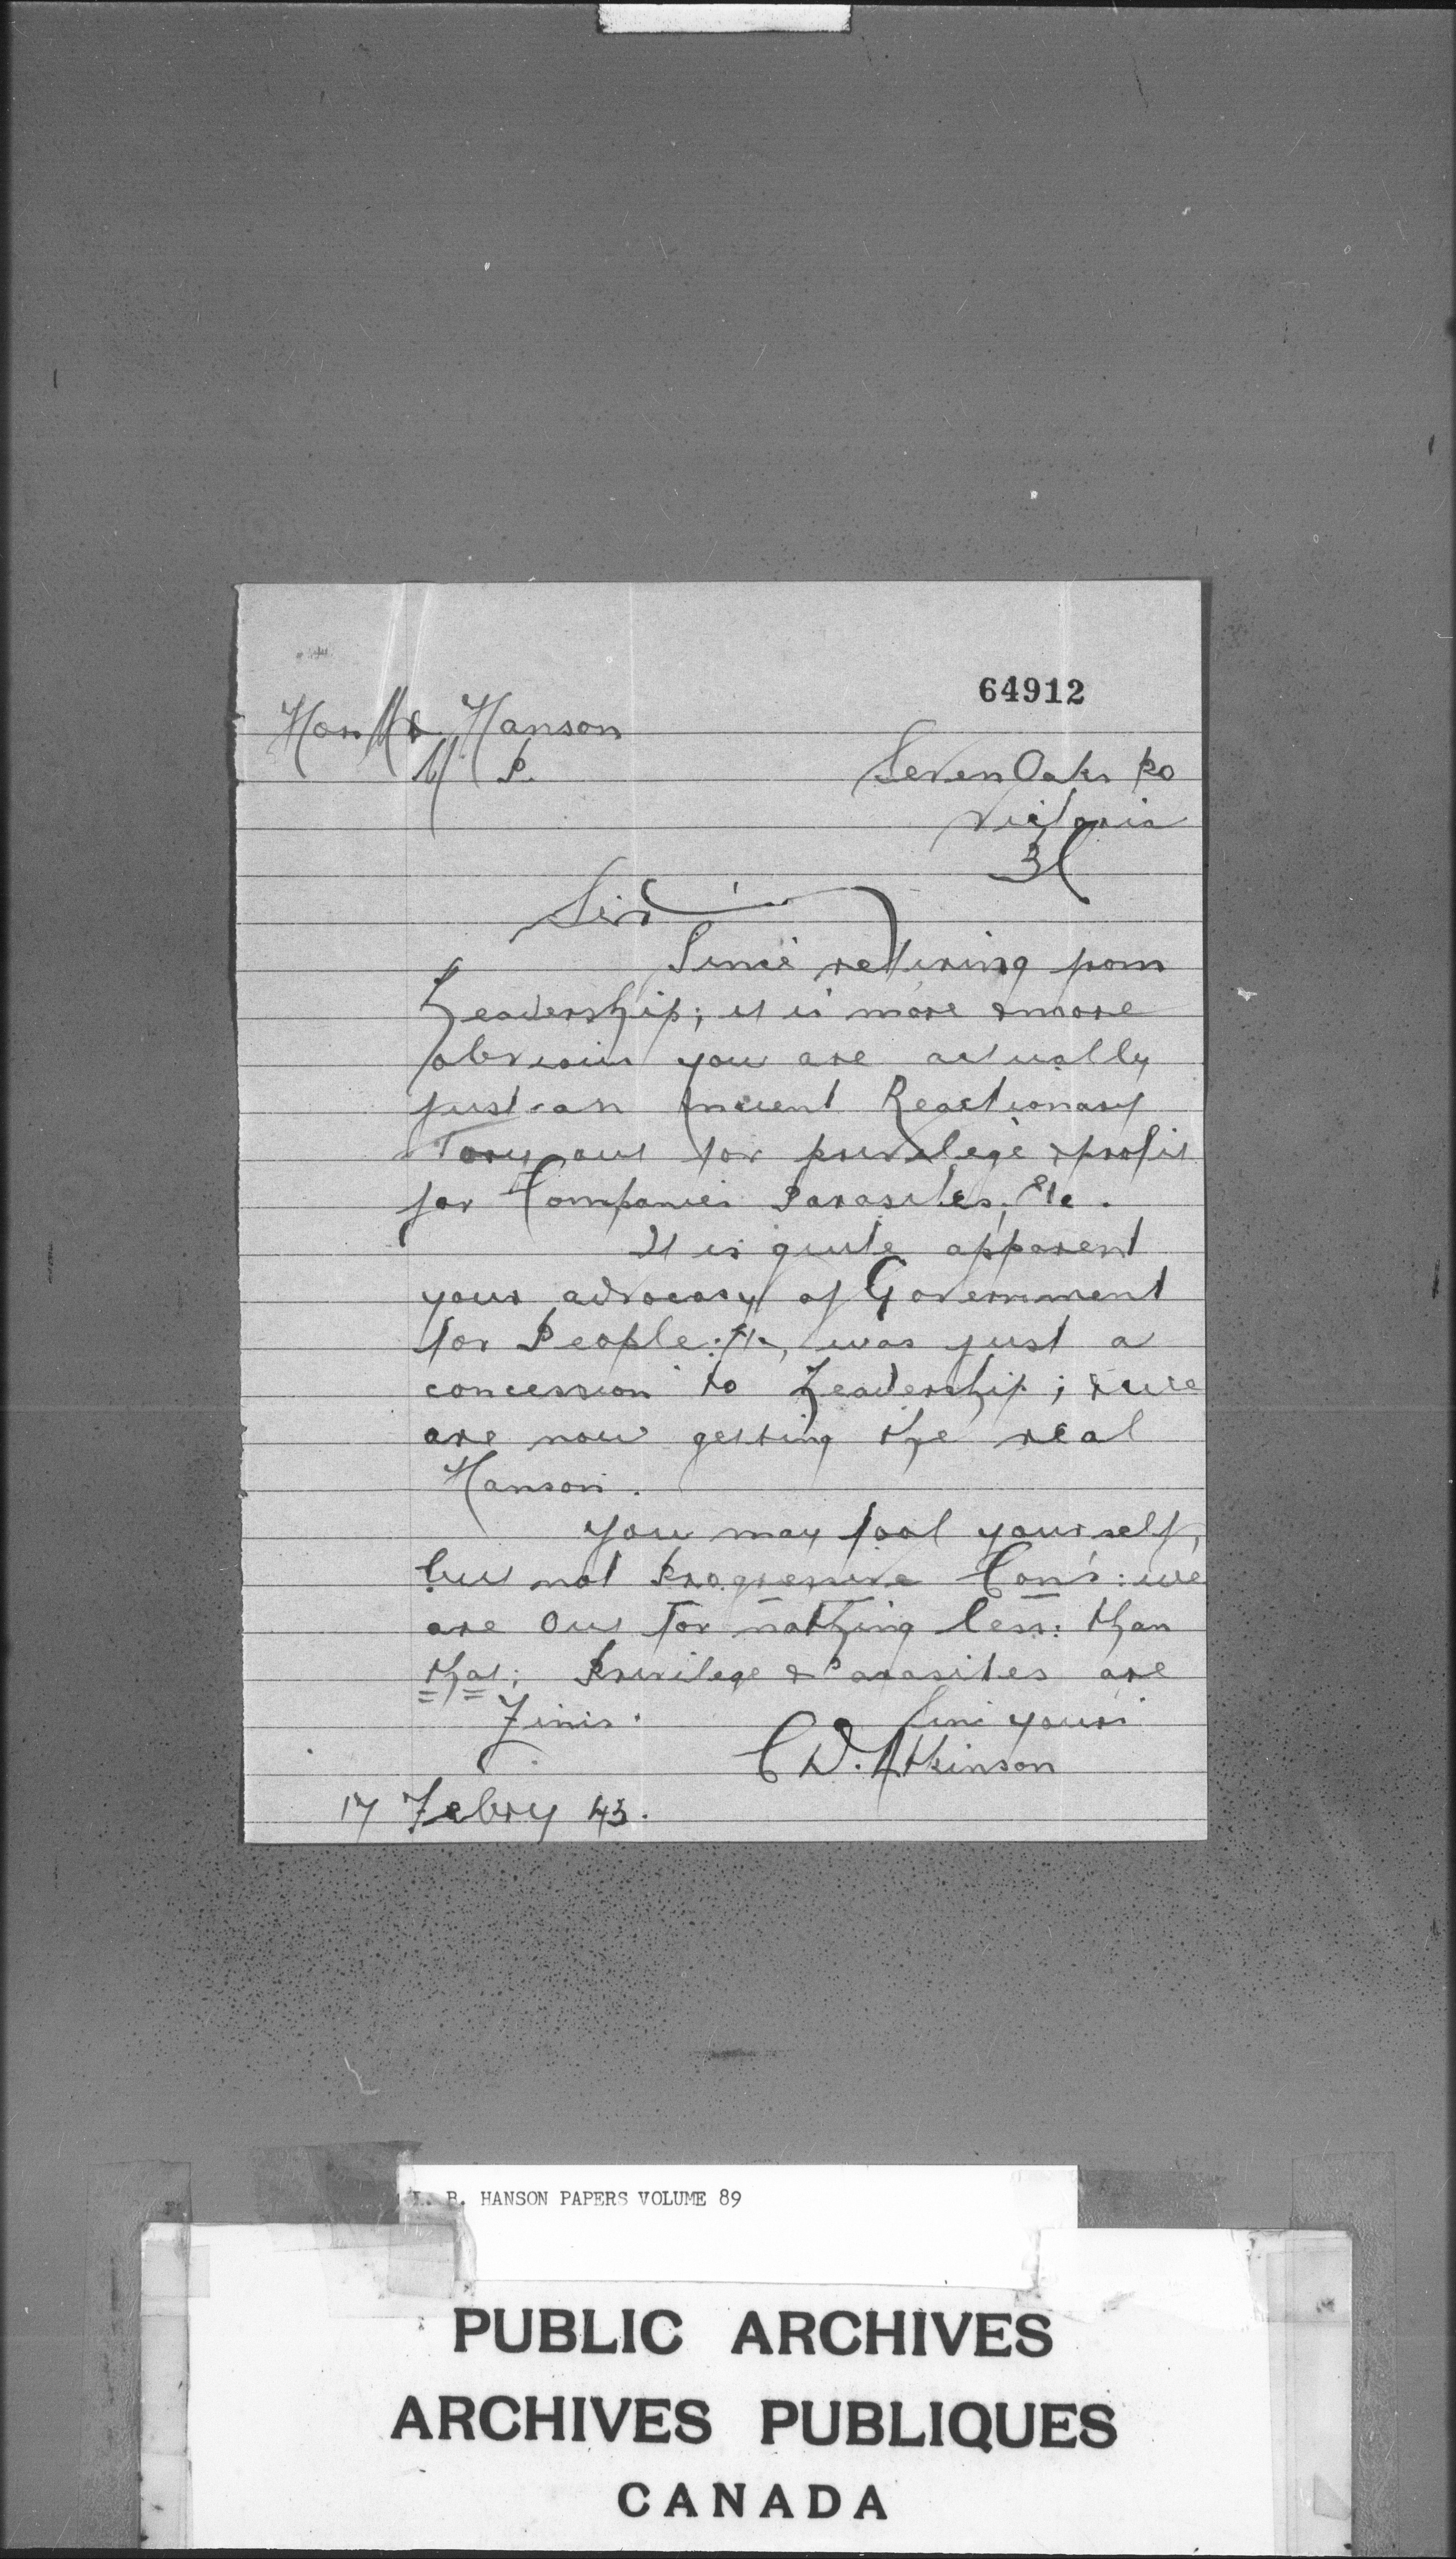 64912
Hon Mr Hanson
M P.
Seven Oaks Rd
Victoria
Sir
Since retiring from
Leadership; it is more & more
obvious you are actually
just an Ancient Reactionary
Tory out for privilege & profit
for Companies Parasites, Etc.
It is quite apparent
your advocacy of Government
for People: Etc, was just a
concession to Leadership; & we
are now getting the real
Hanson.
You may fool yourself,
but not Progressive Con's: we
are Out for nothing less: than
that; Privilege & Parasites are
Finis.
Sin yours
C D. Atkinson
17 Febry 43.
R. B. HANSON PAPERS VOLUME 89
PUBLIC ARCHIVES
ARCHIVES PUBLIQUES
CANADA